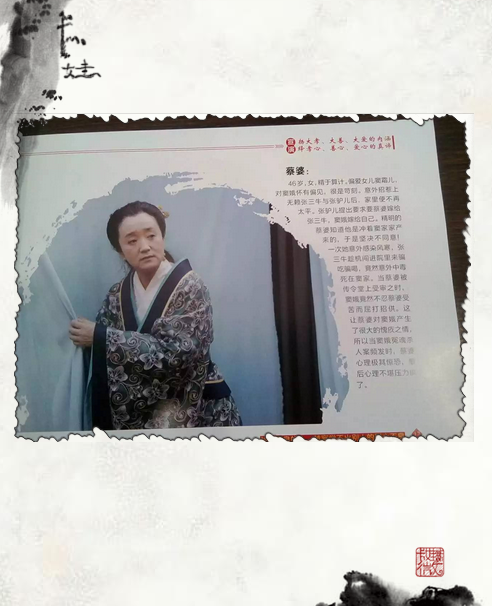 扬大孝、大善、大爱的内涵
释孝心、善心、爱心的真谛
蔡婆：
46岁，女，精于算计，偏爱女儿窦霜儿，
对窦娥怀有偏见，很是苛刻，意外招惹上
无赖张三牛与张驴儿后，家里便不再
太平，张驴儿提出要求要蔡婆嫁给
张三牛，窦娥嫁给自己，精明的
蔡婆知道他是冲着窦家家产
来的，于是坚决不同意！
一次她意外感染风寒，张
三牛趁机闯进院里来骗
吃骗喝，竟然意外中毒
死在窦家，当蔡婆被
传令堂上受审之时，
窦娥竟然不忍蔡婆受
苦而屈打招供，这
让蔡婆对窦娥产生
了很大的愧疚之情，
所以当窦娥冤魂杀
人案频发时，蔡婆
心理极其惊恐，最
后心理不堪压力
了。